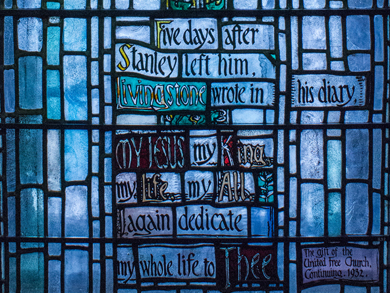 Five days after
Stanley left him,
Livingstone wrote in his diary
MY JESUS my King,
my Life, my All,
I again dedicate
my whole life to Thee
The gift of the
United Free Church,
Continuing. 1932.